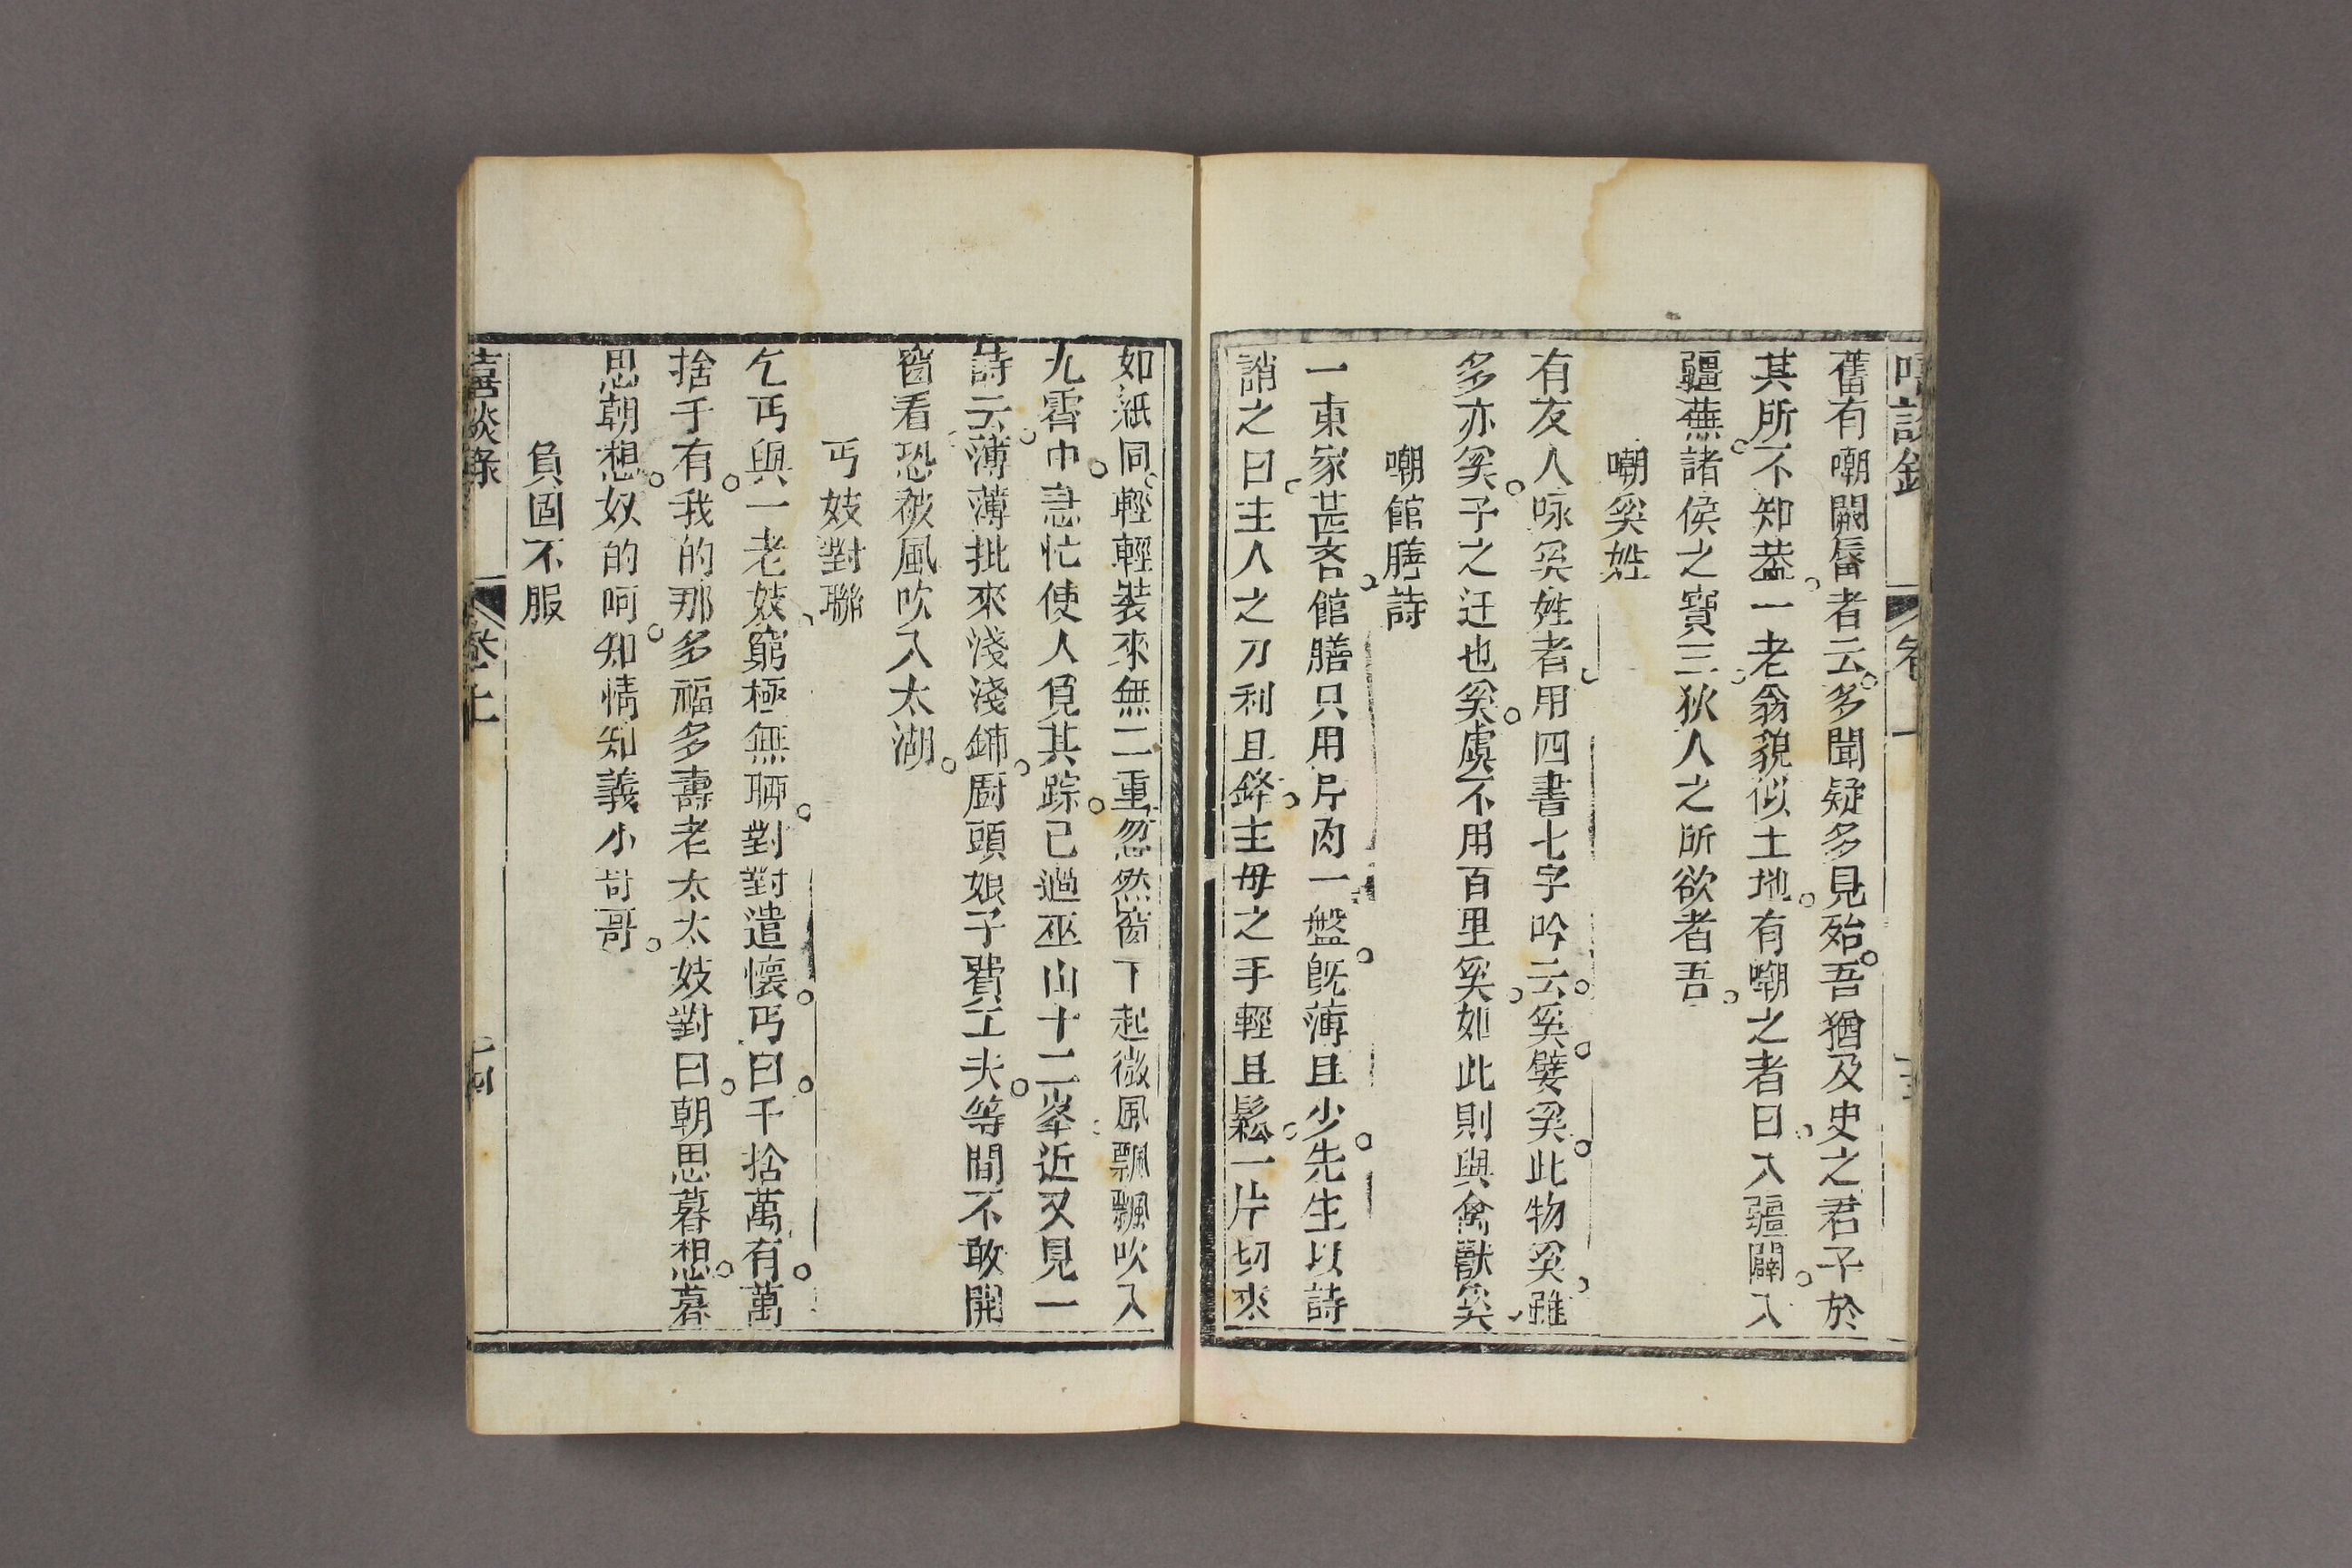 嘻談錄 卷上
舊有嘲闕唇者云。多聞疑多見殆。吾猶及史之君子於
其所不知葢。一老翁貌似土地。有嘲之者曰。入疆闢。入
疆蕪。諸侯之寶三。狄人之所欲者吾。
嘲奚姓
有友人咏奚姓者。用四書七字吟云。奚。嬖奚。此物奚。雖
多亦奚。子之迂也奚。虞不用百里奚。如此則與禽獸奚。
嘲館膳詩
一東家甚吝。館膳只用片肉一盤。旣薄且少。先生以詩
誚之曰。主人之刀利且鋒。主母之手輕且鬆。一片切來
如紙同。輕輕裝來無二重。忽然窗下起微風。飄飄吹入
九霄中。急忙使人覓其踪。已過巫山十二峯。近又見一
詩云。薄薄批來淺淺鋪。厨頭娘子費工夫。等間不敢開
窗看。恐被風吹入太湖。
丐妓對聯
乞丐與一老妓。窮極無聊。對對遣懷。丐曰。千捨萬有。萬
捨于有。我的那多福多壽老太太。妓對曰。朝思暮想。暮
思朝想。奴的呵。知情知義小哥哥。
負固不服
嘻談錄 卷上 十四